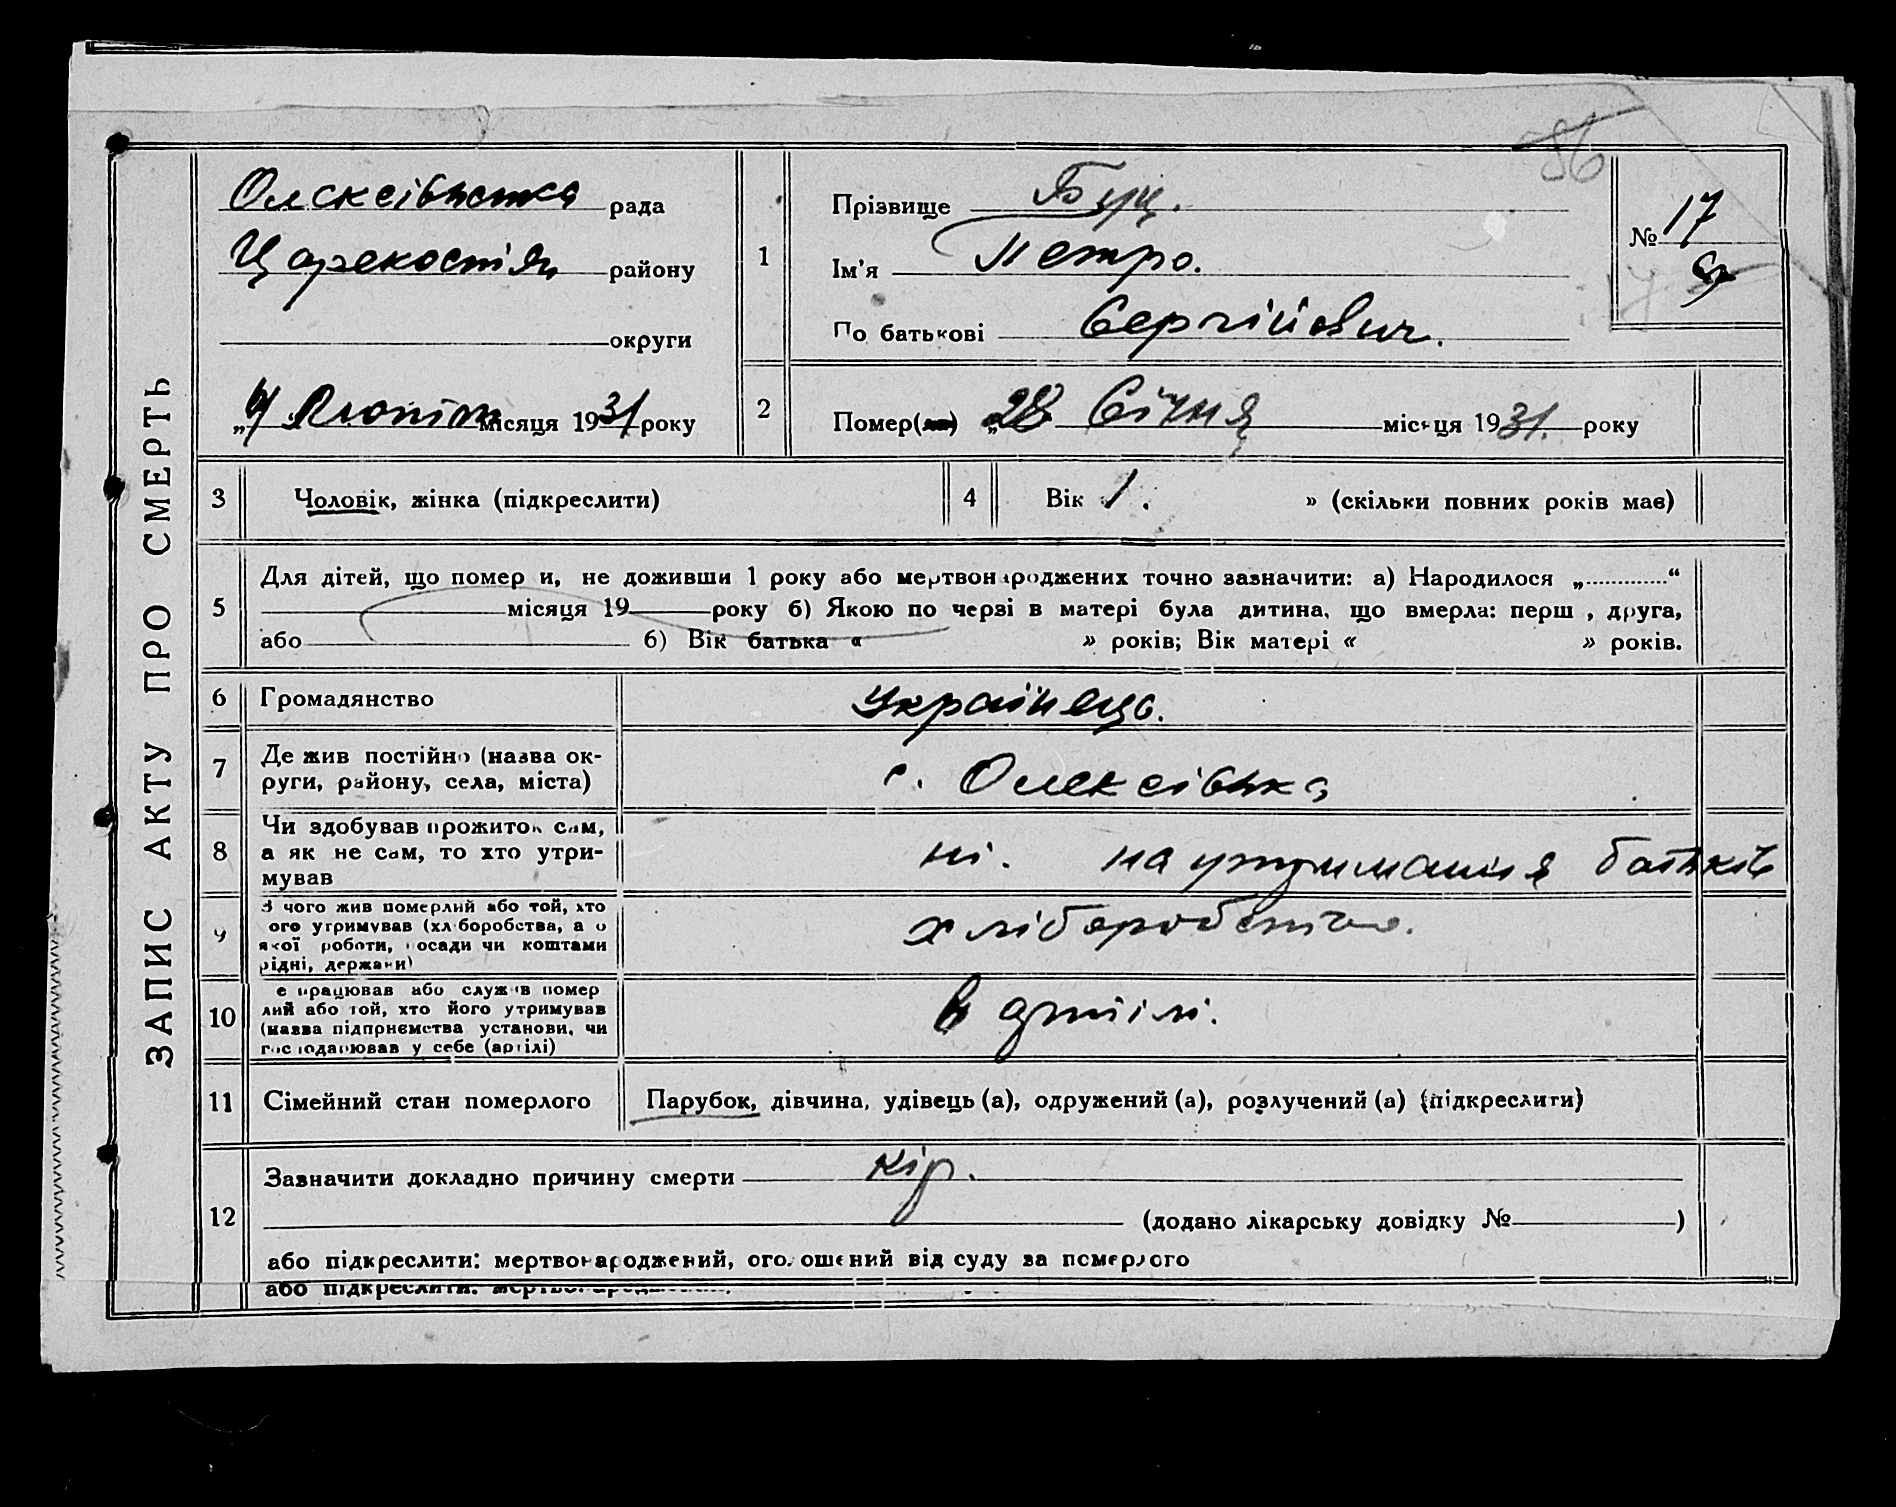 86
ЗАПИС АКТУ ПРО СМЕРТЬ
Олексієвська рада
району
округи
„4 Лютого місяця 1931 року
1
Прізвище Бущ.
Ім'я Петро.
По батькові Сергійович.
№ 17
2
Помер(ла) „28 Січня місяця 1931. року
3 Чоловік, жінка (підкреслити)
4 Вік 1. » (скільки повних років має)
5
Для дітей, що померли, не доживши 1 року або мертвонароджених точно зазначити: а) Народилося „............“
місяця 19 року б) Якою по черзі в матері була дитина, що вмерла: перша, друга,
або б) Вік батька « » років; Вік матері « » років.
6 Громадянство Українець.
7 Де жив постійно (назва ок-
руги, району, села, міста) с. Олексієвка
8 Чи здобував прожиток сам,
а як не сам, то хто утри-
мував ні. на утриманія батьків
9 З чого жив померлий або той, хто
його утримував (хліборобства, а о
якої роботи, посади чи коштами
рідні, держави) хліборобство.
10 Де працював або служив помер
лий або той, хто його утримував
(назва підприємства установи, чи
господарював у себе (артілі) в артілі.
11 Сімейний стан померлого Парубок, дівчина, удівець (а), одружений (а), розлучений (а) (підкреслити)
12
Зазначити докладно причину смерти Кір.
(додано лікарську довідку № )
або підкреслити: мертвонароджений, оголошений від суду за померлого
або підкреслити: